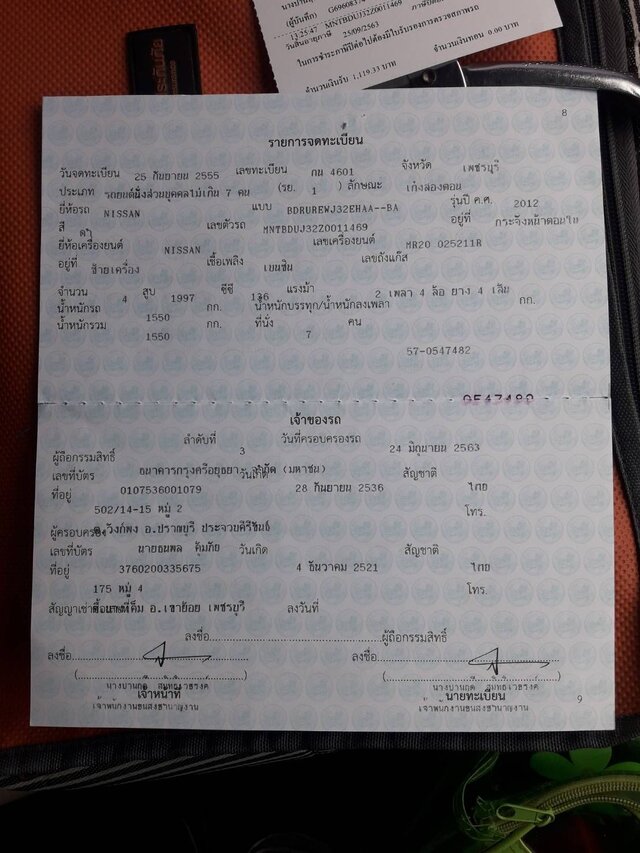 G6960837
(ผู้บันทึก)
13:25:47 MNTBDUJ32Z0011469
วันสิ้นอายุภาษี 25/09/2563
ในการชำระภาษีปีต่อไปต้องมีใบรับรองการตรวจสภาพรถ
จำนวนเงินทอน 0.00 บาท
จำนวนเงินรับ 1,119.33 บาท
8
รายการจดทะเบียน
วันจดทะเบียน 25 กันยายน 2555 เลขทะเบียน กน 4601 จังหวัด เพชรบุรี
ประเภท รถยนต์นั่งส่วนบุคคลไม่เกิน 7 คน (รย. 1 ) ลักษณะ เก๋งสองตอน
ยี่ห้อรถ NISSAN แบบ BDRUREWJ32EHAA--BA รุ่นปี ค.ศ. 2012
สี ดำ เลขตัวรถ MNTBDUJ32Z0011469 อยู่ที่ กระจังหน้าตอนใน
ยี่ห้อเครื่องยนต์ NISSAN เลขเครื่องยนต์ MR20 025211R
อยู่ที่ ซ้ายเครื่อง เชื้อเพลิง เบนซิน เลขถังแก๊ส
จำนวน 4 สูบ 1997 ซีซี 136 แรงม้า 2 เพลา 4 ล้อ ยาง 4 เส้น
น้ำหนักรถ 1550 กก. น้ำหนักบรรทุก/น้ำหนักลงเพลา กก.
น้ำหนักรวม 1550 กก. ที่นั่ง 7 คน
57-0547482
เจ้าของรถ
ลำดับที่ 3 วันที่ครอบครองรถ 24 มิถุนายน 2563
ผู้ถือกรรมสิทธิ์ ธนาคารกรุงศรีอยุธยา จำกัด (มหาชน)
เลขที่บัตร 0107536001079 วันเกิด 28 กันยายน 2536 สัญชาติ ไทย
ที่อยู่ 502/14-15 หมู่ 2 โทร.
ต.วังก์พง อ.ปราณบุรี ประจวบคีรีขันธ์
ผู้ครอบครอง นายธนพล คุ้มภัย
เลขที่บัตร 3760200335675 วันเกิด 4 ธันวาคม 2521 สัญชาติ ไทย
ที่อยู่ 175 หมู่ 4 โทร.
อ.เขาย้อย เพชรบุรี
สัญญาเช่าซื้อ ลงวันที่
ลงชื่อ ผู้ถือกรรมสิทธิ์
ลงชื่อ ลงชื่อ
เจ้าหน้าที่ นายทะเบียน
เจ้าพนักงานขนส่งชำนาญงาน เจ้าพนักงานขนส่งชำนาญงาน
9